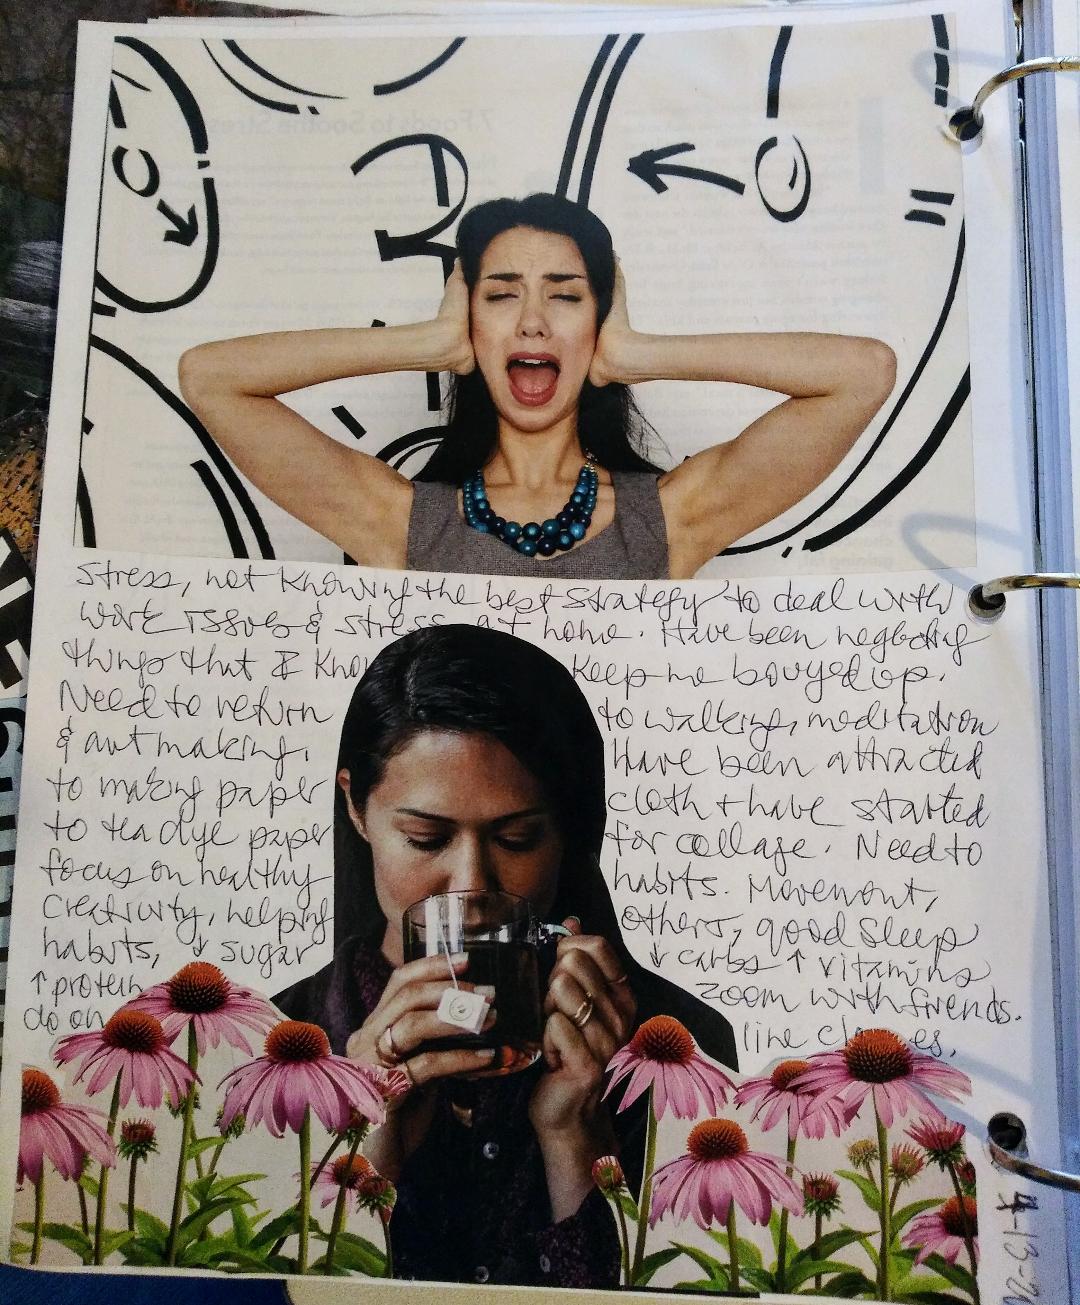 7 Foods to Soothe Stress
Stress, not knowing the best strategy to deal with
work issues & stress at home. Have been neglecting
things that I know keep me bouyed up.
Need to return to walking, meditation
& art making. Have been attracted
to making paper cloth + have started
to tea dye paper for collage. Need to
focus on healthy habits. Movement,
creativity, helping others, good sleep
habits, ↓ sugar ↓ carbs ↑ vitamins
↑ protein zoom with friends.
do on line classes.
4-13-20